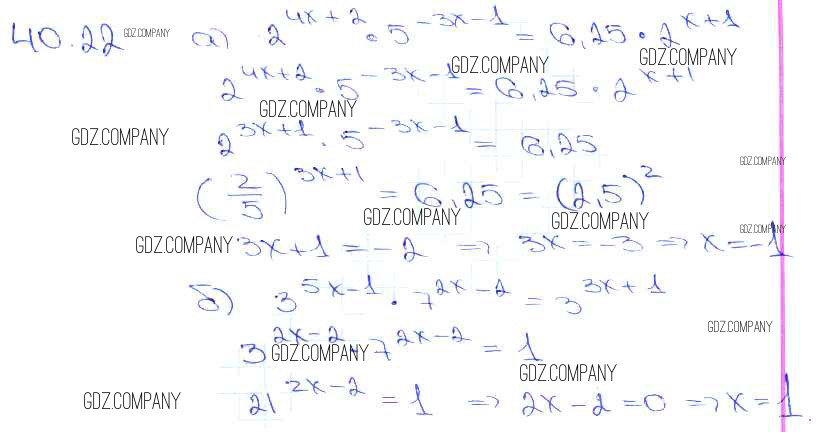 40.22 GDZ.COMPANY а) 2^{4x+2} · 5^{-3x-1} = 6,25 · 2^{x+1}
GDZ.COMPANY GDZ.COMPANY
2^{4x+2} · 5^{-3x-1} = 6,25 · 2^{x+1}
GDZ.COMPANY
GDZ.COMPANY 2^{3x+1} · 5^{-3x-1} = 6,25
GDZ.COMPANY
(2/5)^{3x+1} = 6,25 = (2,5)^2
GDZ.COMPANY GDZ.COMPANY
GDZ.COMPANY 3x+1 = -2 => 3x = -3 => x = -1 GDZ.COMPANY
б) 3^{5x-1} · 7^{2x-2} = 3^{3x+1}
GDZ.COMPANY
3^{2x-2} · 7^{2x-2} = 1
GDZ.COMPANY
GDZ.COMPANY
GDZ.COMPANY 21^{2x-2} = 1 => 2x-2 = 0 => x = 1.